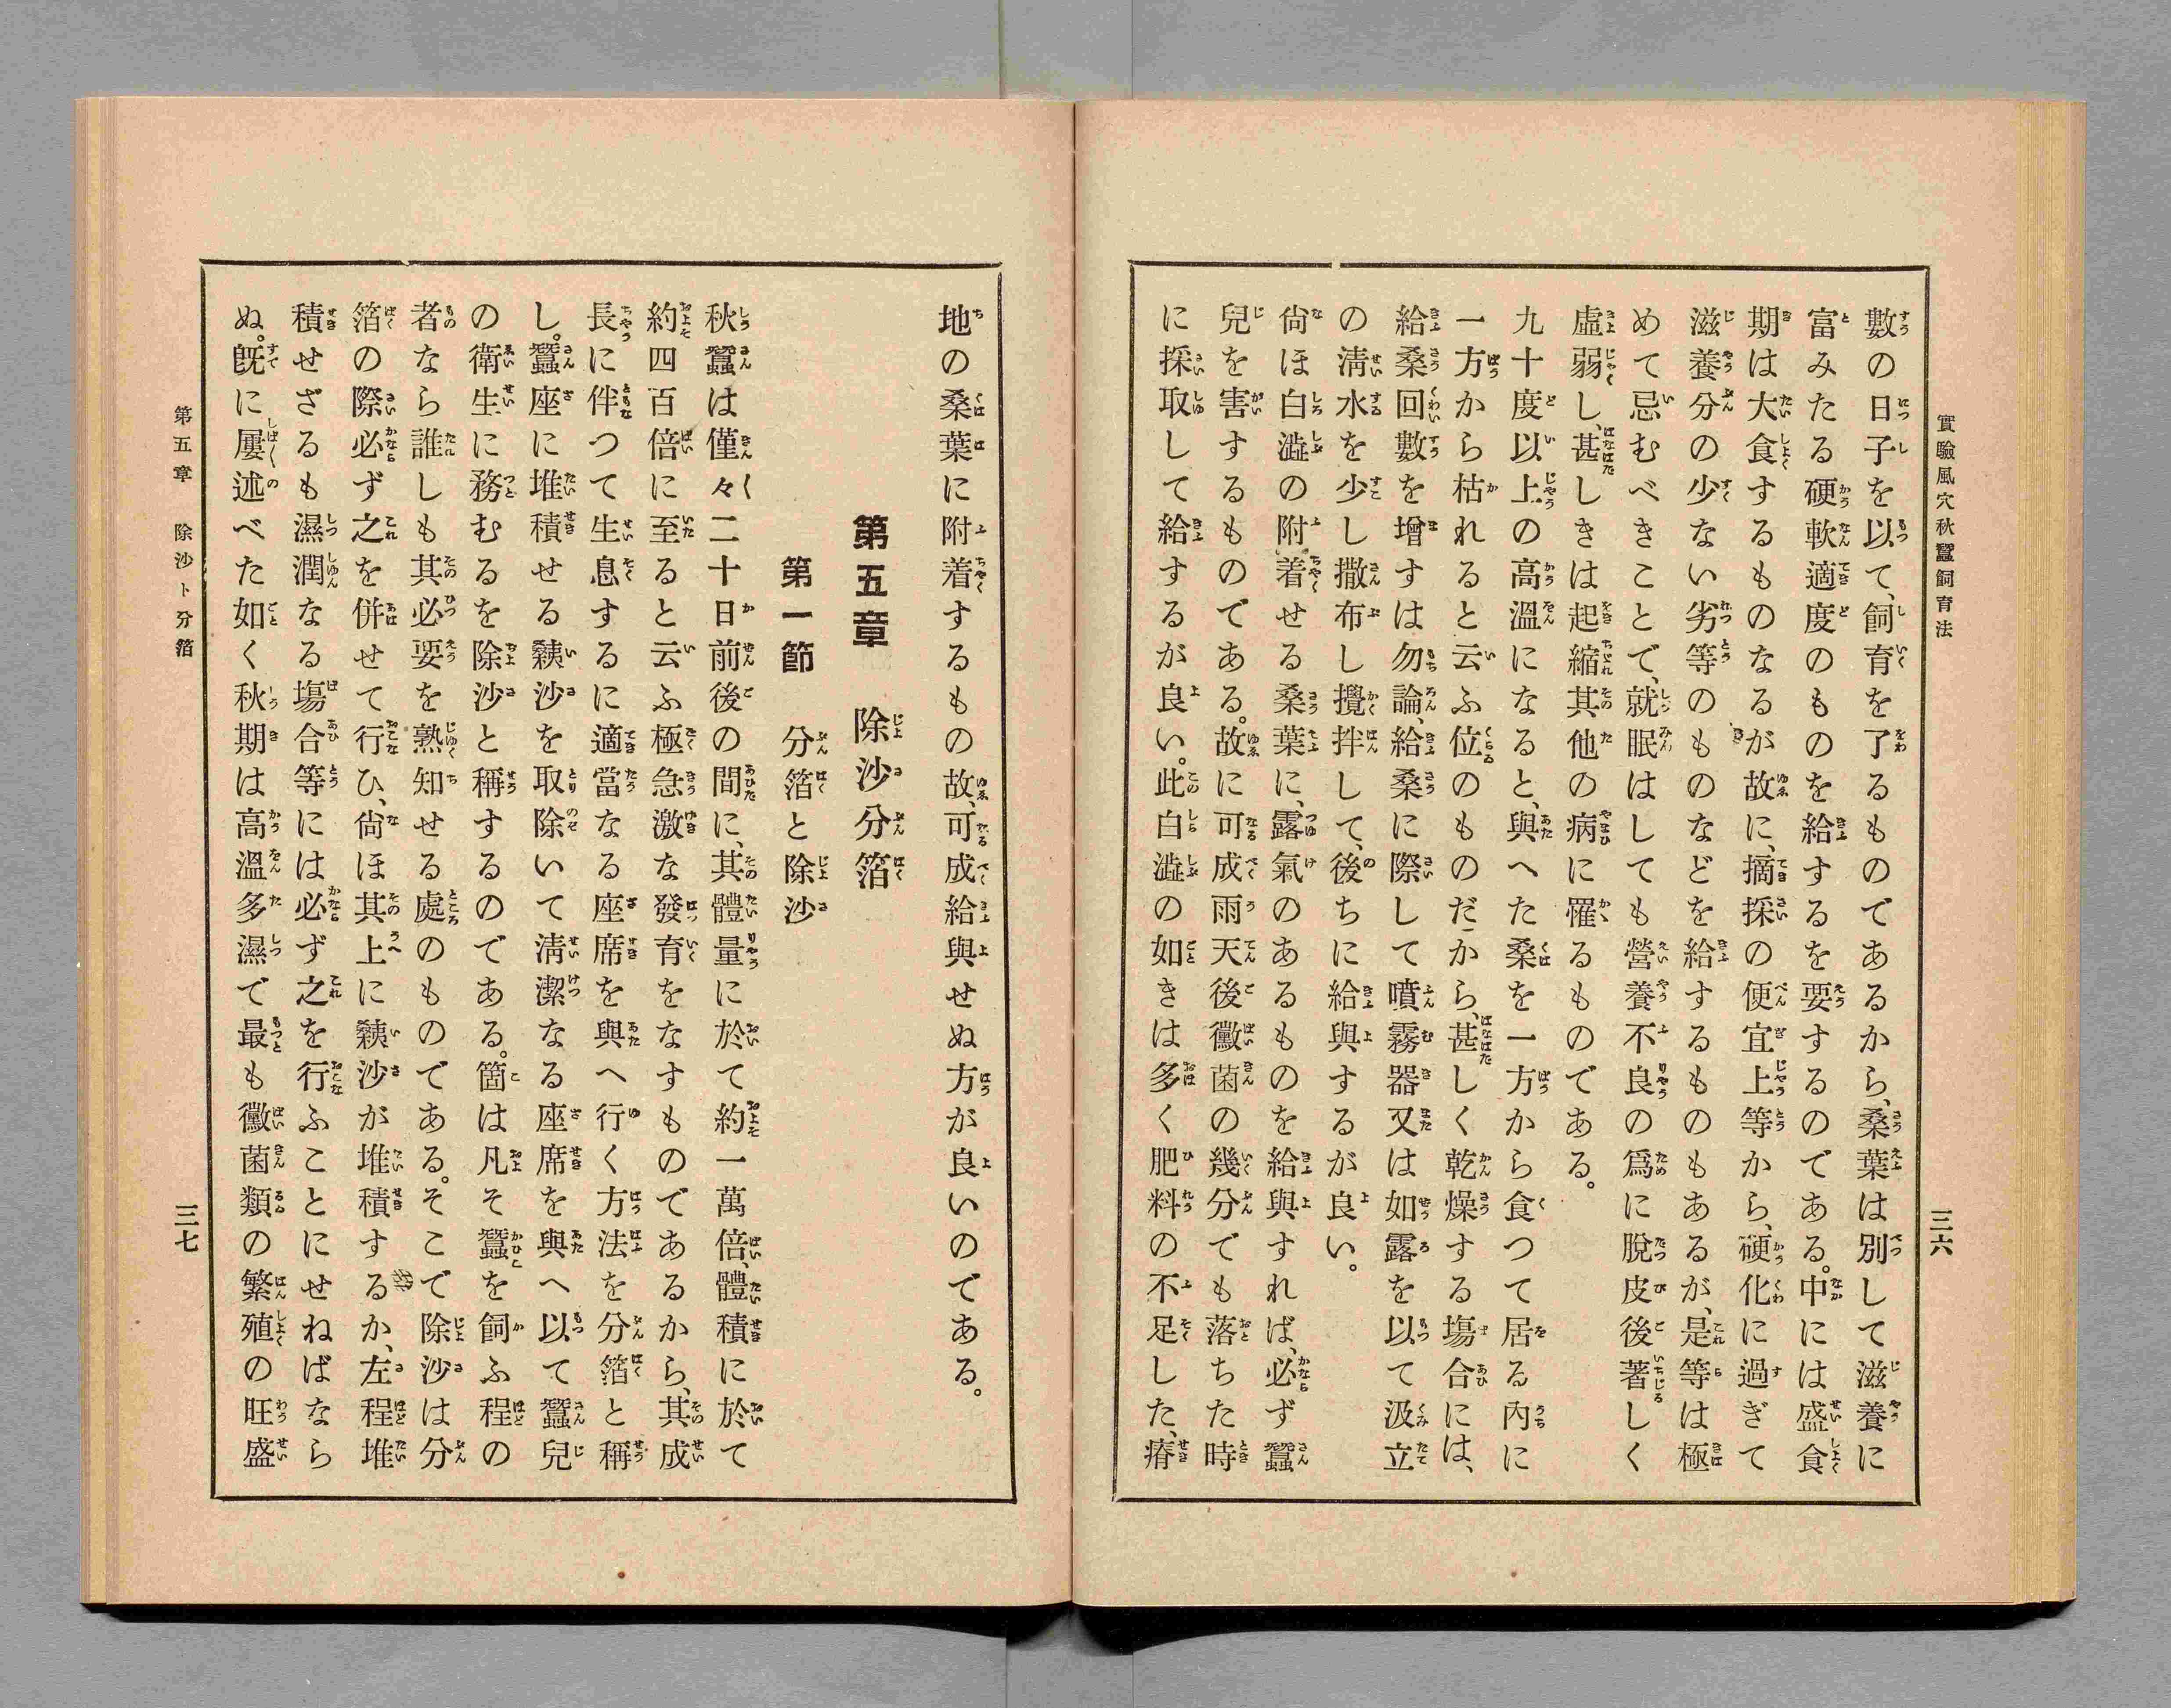 實驗風穴秋蠶飼育法
三六
數の日子を以て、飼育を了るものであるから、桑葉は別して滋養に
富みたる硬軟適度のものを給するを要するのである。中には盛食
期は大食するものなるが故に、摘採の便宜上等から、硬化に過ぎて
滋養分の少ない劣等のものなどを給するものもあるが、是等は極
めて忌むべきことで、就眠はしても營養不良の爲に脫皮後著しく
虛弱し、甚しきは起縮其他の病に罹るものである。
九十度以上の高溫になると、與へた桑を一方から食つて居る內に
一方から枯れると云ふ位のものだから、甚しく乾燥する塲合には、
給桑回數を增すは勿論、給桑に際して噴霧器又は如露を以て汲立
の淸水を少し撒布し攪拌して、後ちに給與するが良い。
尙ほ白澁の附着せる桑葉に、露氣のあるものを給與すれば、必ず蠶
兒を害するものである。故に可成雨天後黴菌の幾分でも落ちた時
に採取して給するが良い。此白澁の如きは多く肥料の不足した、瘠
地の桑葉に附着するもの故、可成給與せぬ方が良いのである。
第五章　除沙分箔
第一節　分箔と除沙
秋蠶は僅々二十日前後の間に、其體量に於て約一萬倍、體積に於て
約四百倍に至ると云ふ極急激な發育をなすものであるから、其成
長に伴つて生息するに適當なる座席を與へ行く方法を分箔と稱
し。蠶座に堆積せる糞沙を取除いて淸潔なる座席を與へ以て蠶兒
の衛生に務むるを除沙と稱するのである。箇は凡そ蠶を飼ふ程の
者なら誰しも其必要を熟知せる處のものである。そこで除沙は分
箔の際必ず之を併せて行ひ、尙ほ其上に沙が堆積するか、左程堆
積せざるも濕潤なる塲合等には必ず之を行ふことにせねばなら
ぬ。旣に屢述べた如く秋期は高溫多濕で最も黴菌類の繁殖の旺盛
第五章　除沙ト分箔
三七